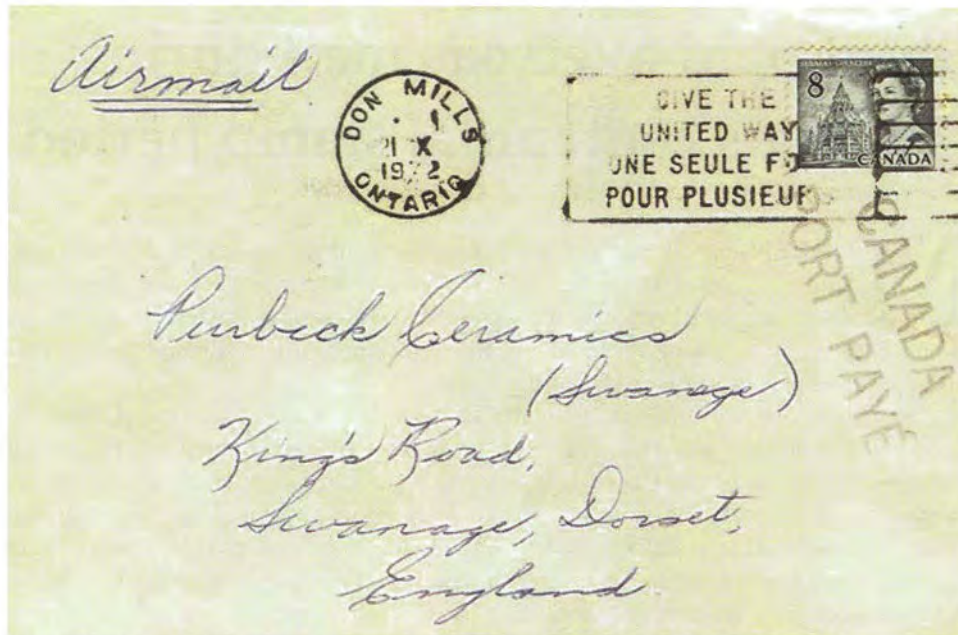 Airmail
DON MILLS
21 X
1972
ONTARIO
GIVE THE
UNITED WAY
UNE SEULE FO
POUR PLUSIEUR
8
CANADA
CANADA
PORT PAYÉ
Purbeck Ceramics
(Swanage)
King's Road,
Swanage, Dorset,
England.